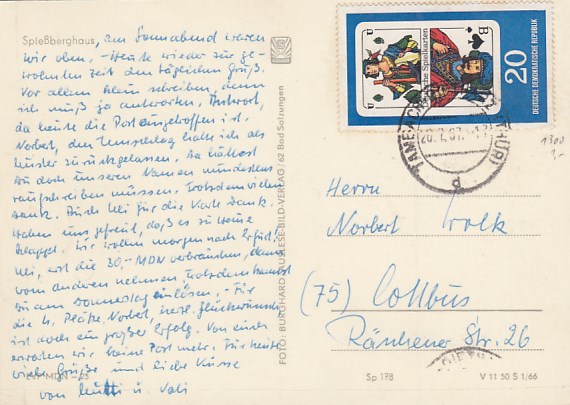 Spießberghaus, am Sonnabend waren
wir oben. - Heute wieder zur ge-
wohnten Zeit den täglichen Gruß.
Vor allem klein schreiben, denn
ich muß ja antworten. Antwort,
da heute die Post eingetroffen ist.
Norbert, den Umschlag hatte ich als
Muster zurückgelassen. Da hättest
Du doch unseren Namen mindestens
raufschreiben müssen. Trotzdem vielen
Dank. Auch Uli für die Karte Dank.
Haben uns gefreut, daß es zu Hause
klappt. Wir wollen morgen nach Erfurt.
Uli, erst die 30,- MDN verbrauchen, dann
vom anderen nehmen. Trotzdem kannst
Du am Donnerstag einlösen. - Für
die 4. Plätze, Norbert, herzl. Glückwünsche
ist doch ein großer Erfolg. Von euch
erwarten wir keine Post mehr. Für heute
viele Grüße und liebe Küsse
von Mutti u. Vati
MDN
FOTO: BURGHARD AUSLESE-BILD-VERLAG / 62 Bad Salzungen
U
B
Deutsche Spielkarten
20
DEUTSCHE DEMOKRATISCHE REPUBLIK
Herrn
Norbert
(75) Cottbus
Str. 26
Sp 178
V 11 50 S 1/66